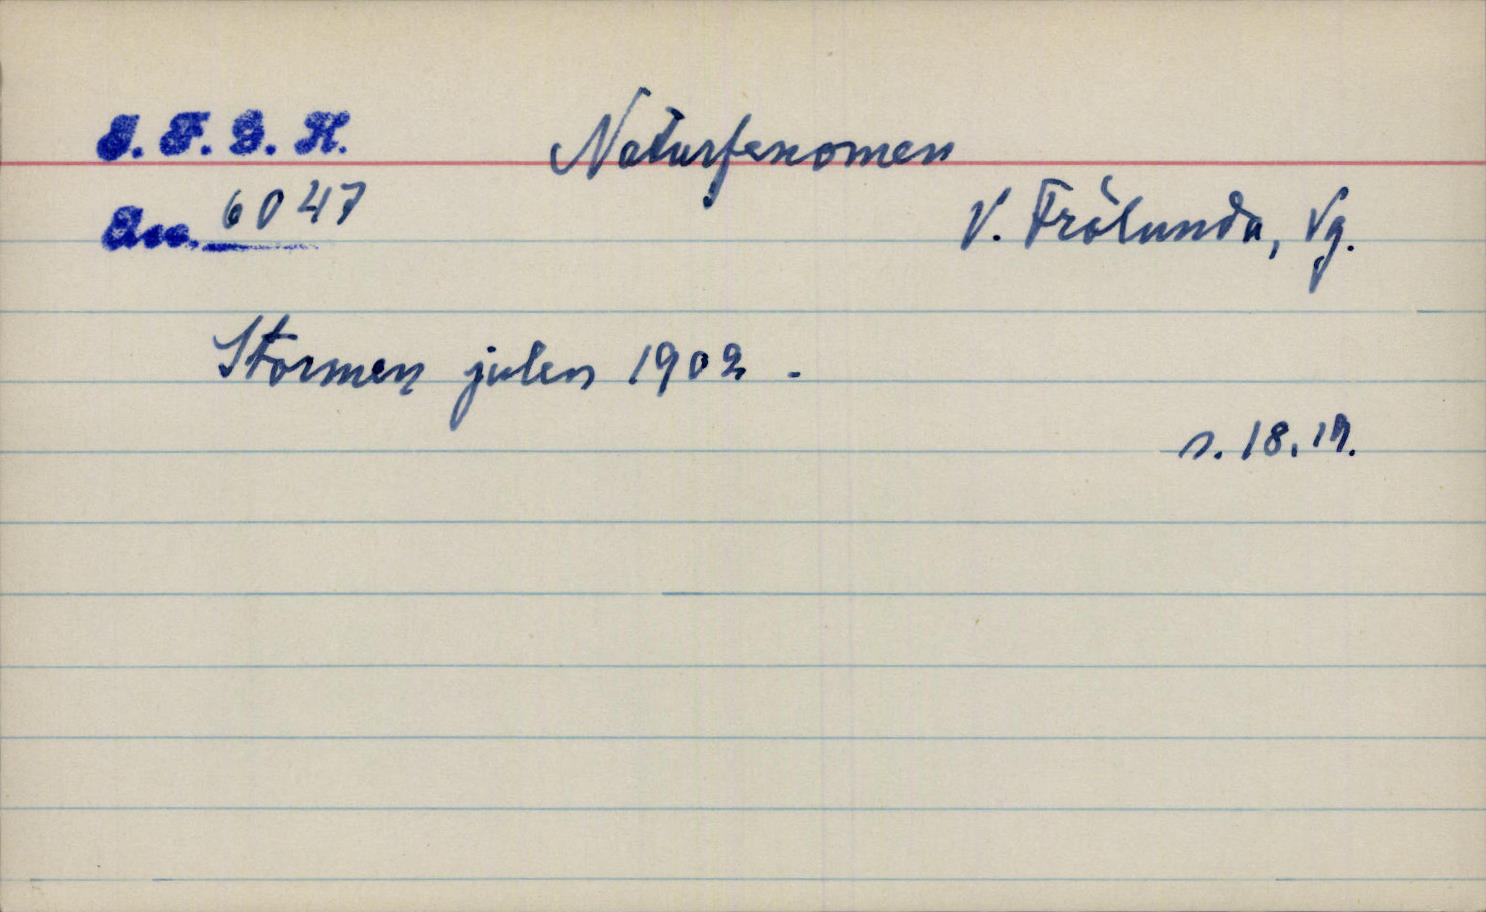 I. F. G. H.
Naturfenomen
Acc. 6047
V. Frölunda, Vg.
Stormen julen 1902 -
s. 18, 19.